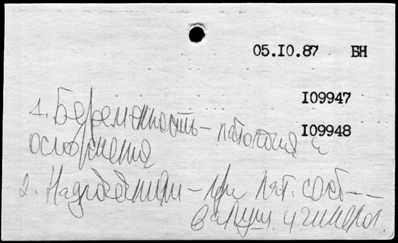 05.10.87 БН
109947
109948
1. Беременность - патология и
осложнения
2. Надпочечники - при пат. сост